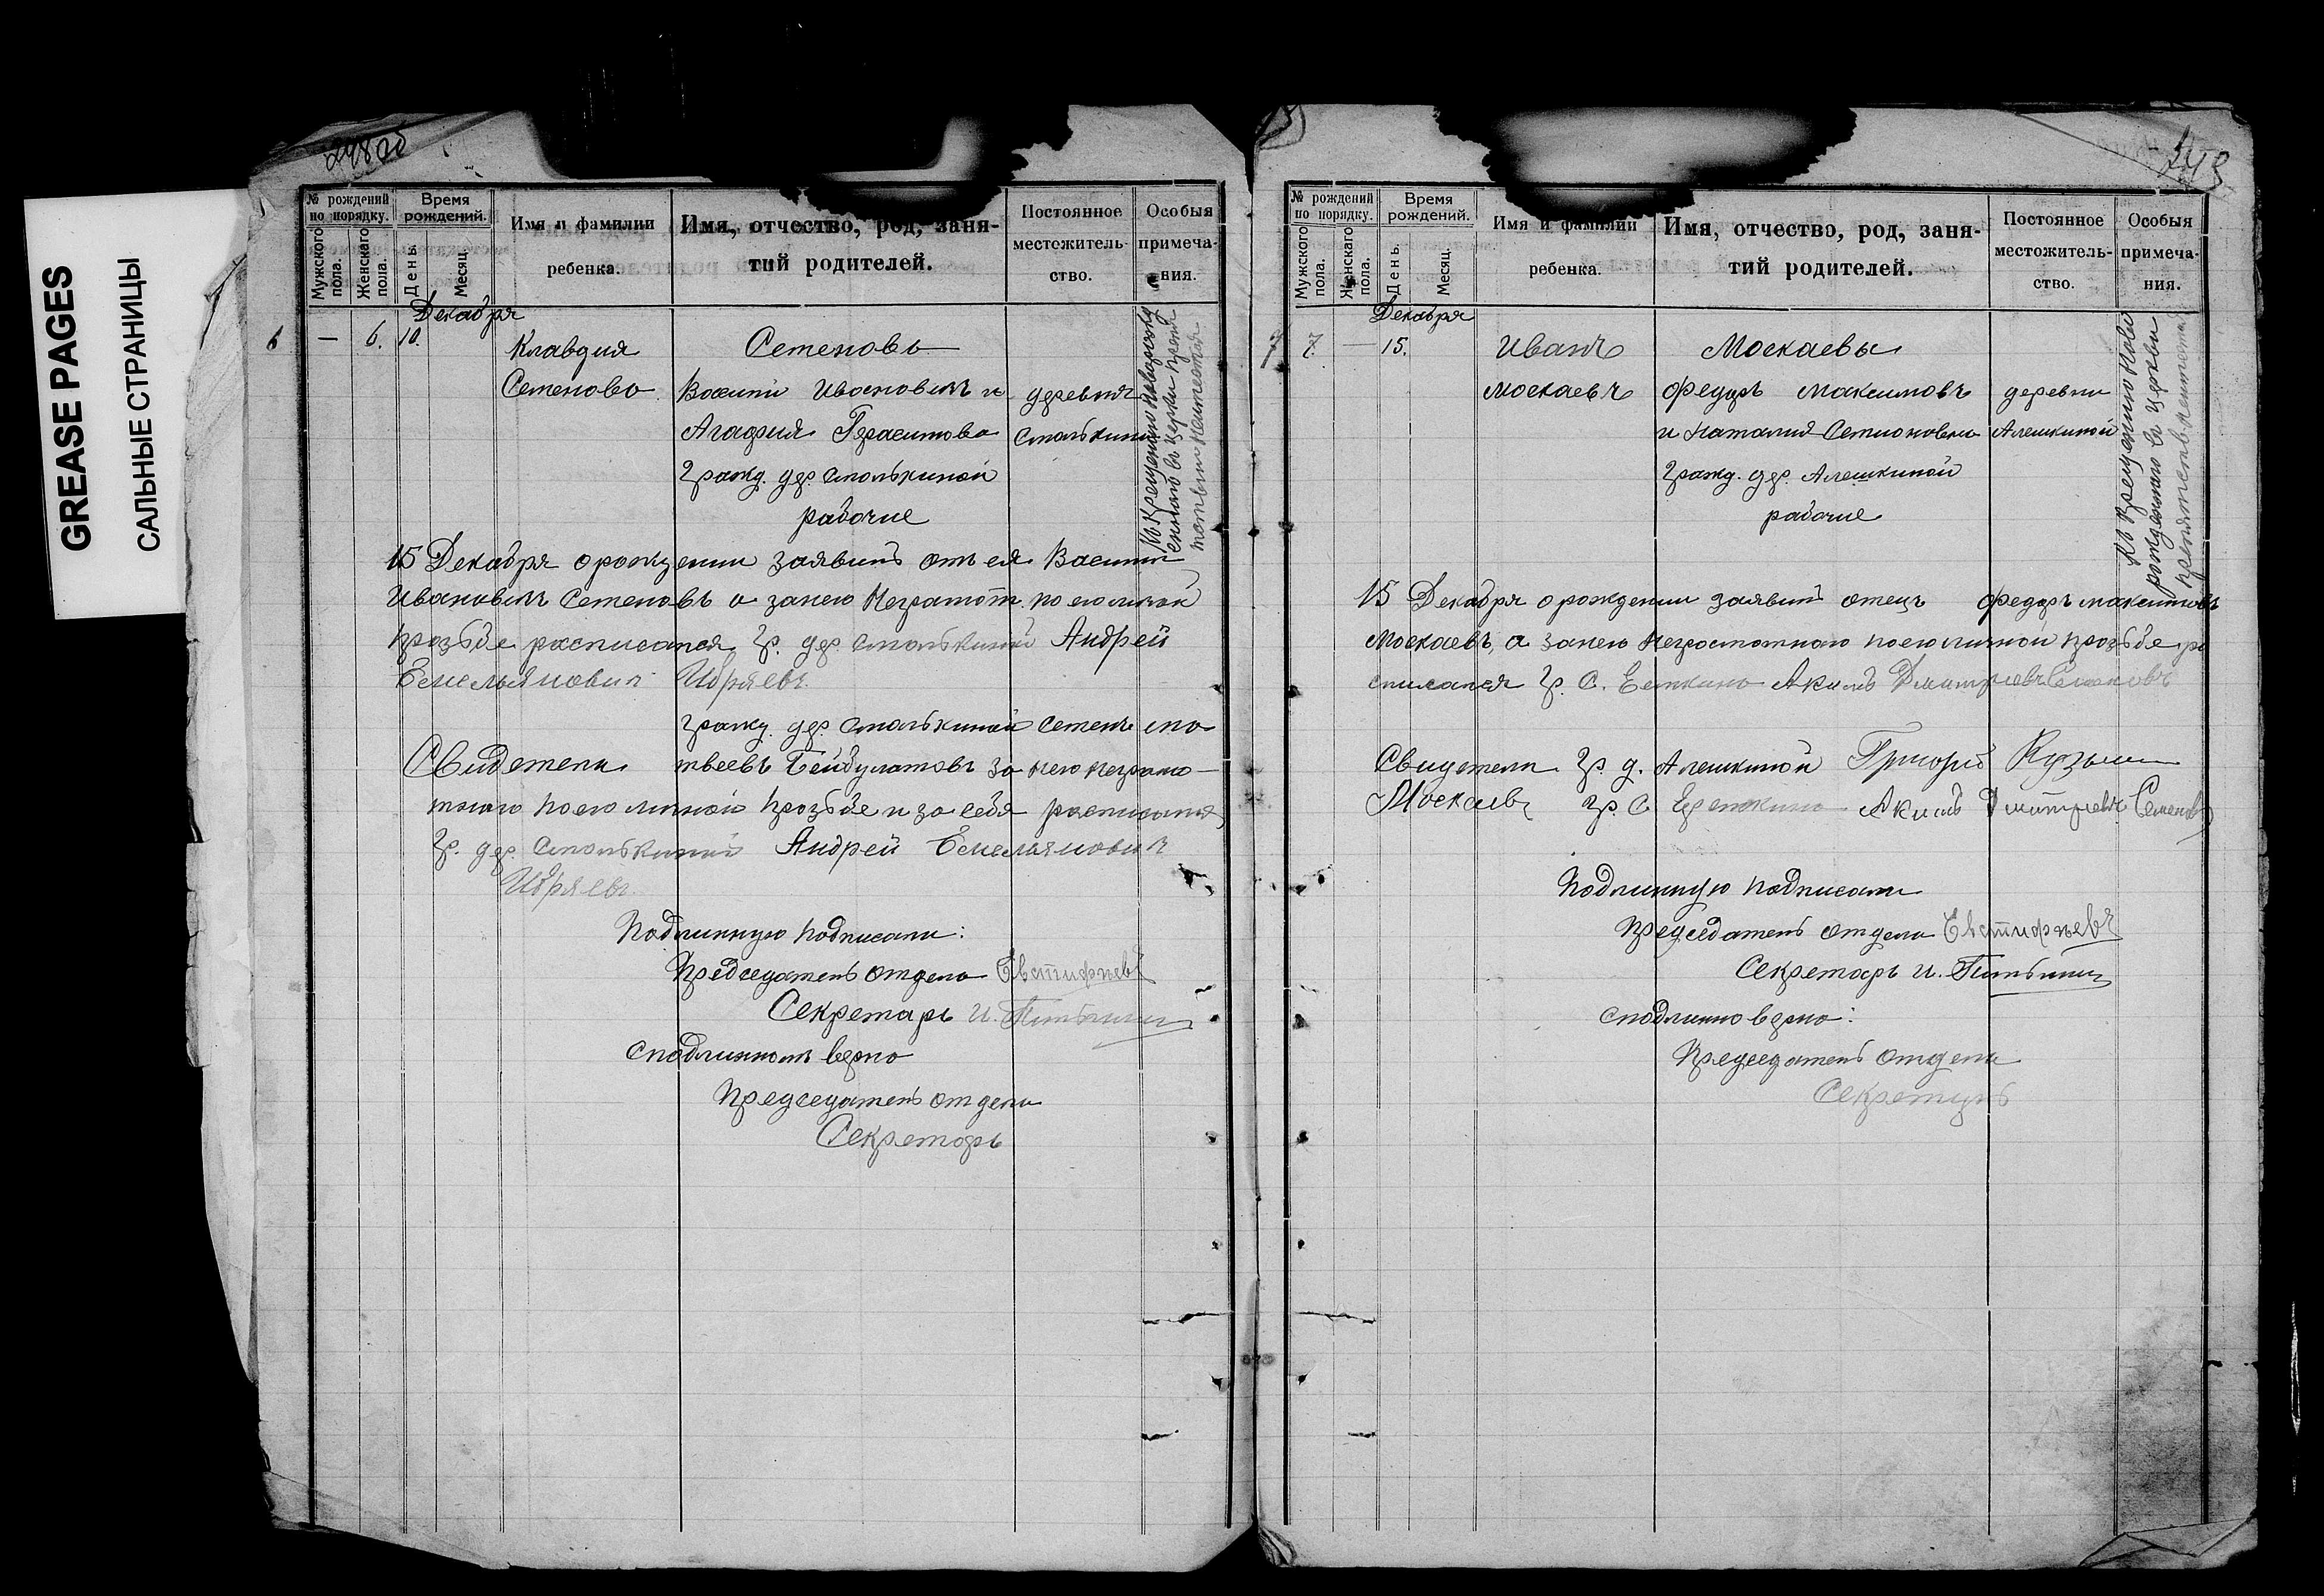 GREASE PAGES
САЛЬНЫЕ СТРАНИЦЫ
248 об
№ рождений по порядку.
Мужского пола.
Женскаго пола.
Время рождений.
День.
Месяц.
Имя и фамилии ребенка.
Имя, отчество, род, занятий родителей.
Постоянное местожительство.
Особыя примечания.
Декабря
6 — 6. 10.
Клавдия
Семенова
Семеновы
Василий Ивановичъ и
Агафия Герасимова
гражд. дер. Стюлькиной
рабочие
деревня
Стюлькиной
15 Декабря о рождении заявилъ отъ ея Василий
Ивановичъ Семеновъ а за него Неграмот. по его личной
прозьбе расписался гр. дер. Стюлькиной Андрей
Емельянович
гражд. дер. Стюлькиной Семенъ Мат
Свидетели твеевъ Бейбулатовъ за него неграмо-
тнаго по его личной прозьбе и за себя расписался
гр. дер. Стюлькиной Андрей Емельянович
Подлинную подписали:
Председатель отдела Евстифеевъ
Секретарь И.
с подлинномъ верно
Председатель отдела
Секретарь
249
№ рождений по порядку.
Мужского пола.
Женскаго пола.
Время рождений.
День.
Месяц.
Имя и фамилии ребенка.
Имя, отчество, род, занятий родителей.
Постоянное местожительство.
Особыя примечания.
Декабря
7 7. — 15.
Иванъ
Москаевъ
Москаевы
Федоръ Максимовъ
и Наталия Семионовна
гражд. дер. Алешкиной
рабочие
деревни
Алешкиной
Къ Крещению Ново
рожденнаго въ церкви
препятств. неимеется
15 Декабря о рождении заявилъ отецъ Федоръ Максимовъ
Москаевъ, а за него Неграмотнаго по его личной прозьбе ра
списался гр. С. Акимъ Дмитриевъ Семеновъ
Свидетели гр. д. Алешкиной Григорий Кузьмин
Москаевъ гр. С. Акимъ Дмитриевъ Семеновъ
Подлинную подписали
Председатель отдела Евстифеевъ
Секретарь И.
с подлинно верно:
Председатель отдела
Секретарь